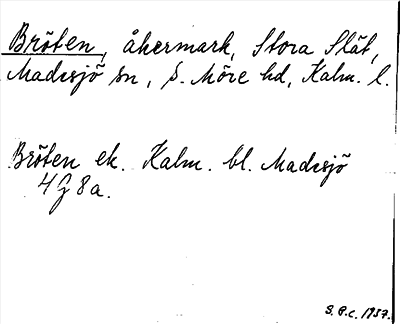 Bröten, åkermark, Stora Slät,
Madesjö sn, S. Möre hd, Kalm. l.
Bröten ek. Kalm. bl. Madesjö
4 G 8 a.
S.P.C. 1957.